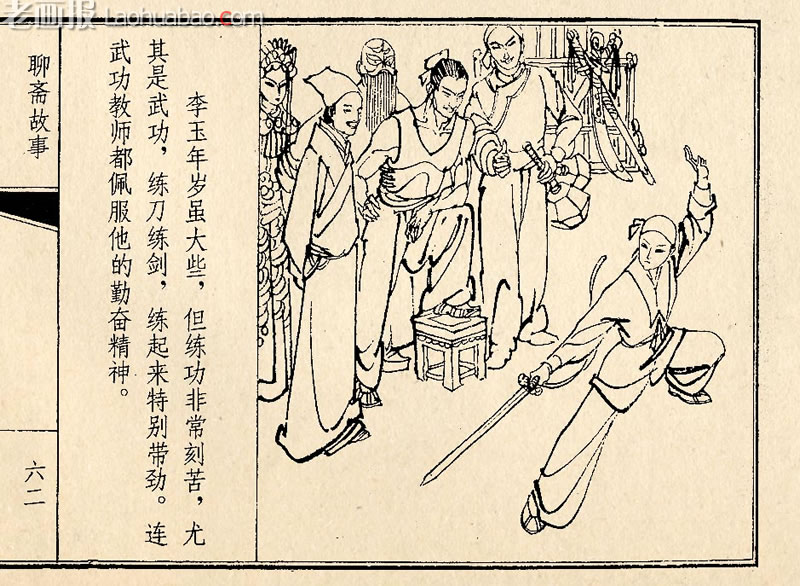 老画报 Laohuabao.com
李玉年岁虽大些，但练功非常刻苦，尤
其是武功，练刀练剑，练起来特别带劲。连
武功教师都佩服他的勤奋精神。
聊斋故事
六二